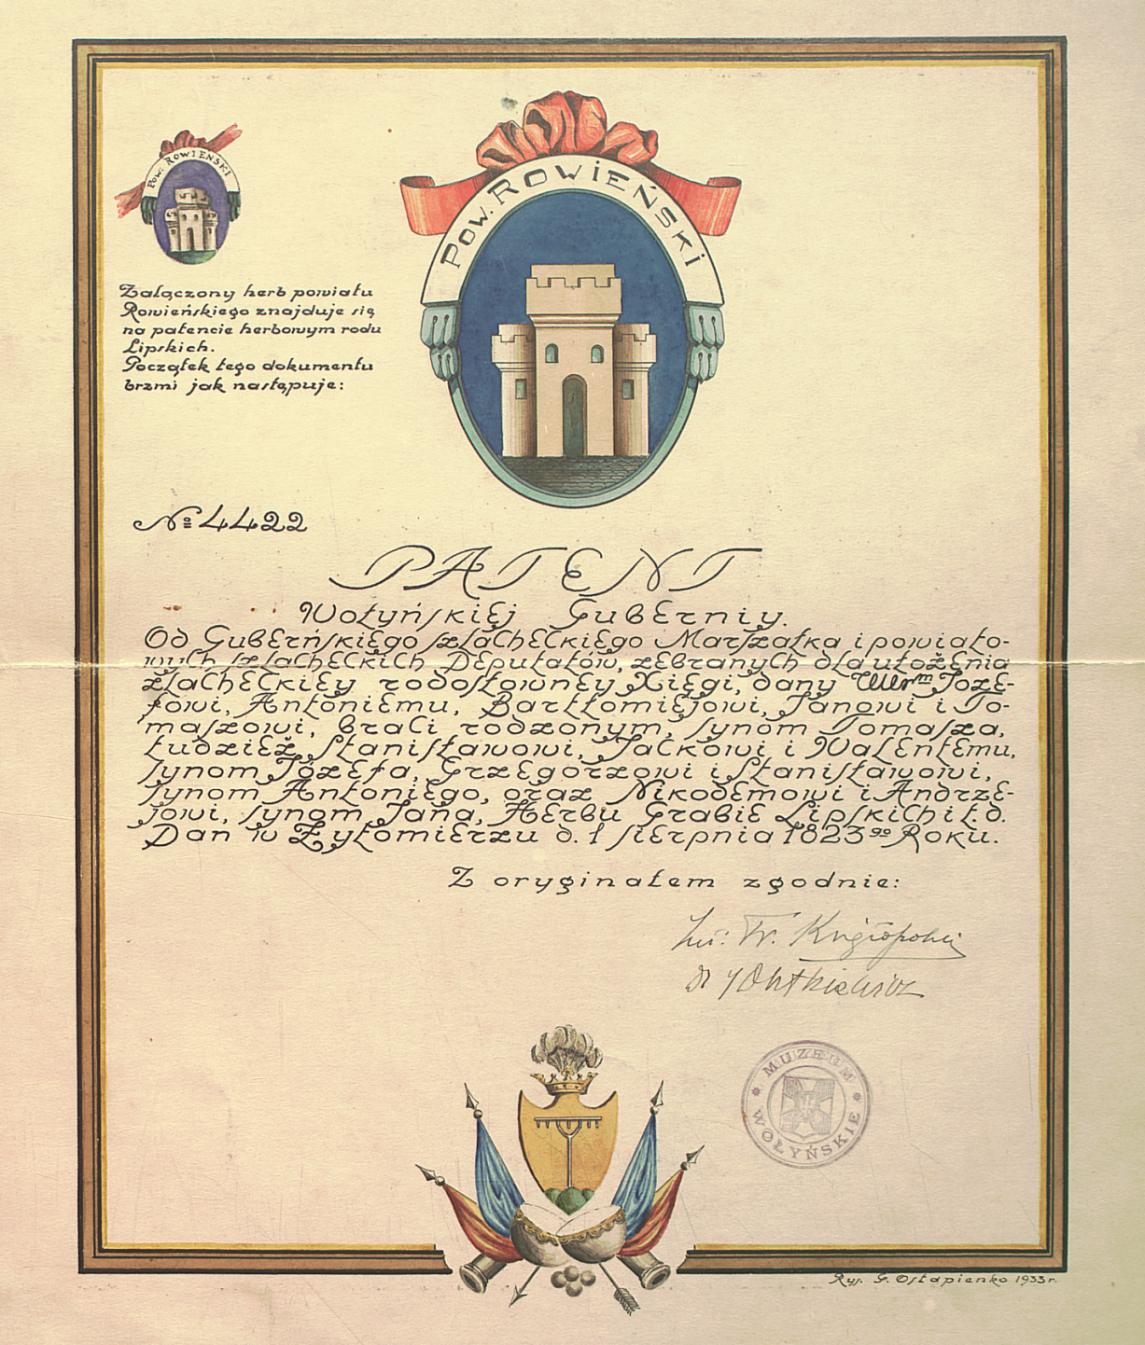 Pow. Rowieński
Pow. Rowieński
Załączony herb powiatu
Rowieńskiego znajduje się
na patencie herbowym rodu
Lipskich.
Początek tego dokumentu
brzmi jak następuje:
№ 4422
PATENT
Wołyńskiej Guberniy.
Od Guberńskiego szlacheckiego Marszałka i powiato-
wych szlacheckich Deputatów, zebranych dla ułożenia
szlacheckiey rodosłowney Xięgi, dany Józe-
fowi, Antoniemu, Bartłomiejowi, Janowi i To-
maszowi, braci rodzonym, synom Tomasza,
tudzież Stanisławowi, Jackowi i Walentemu,
synom Józefa, Grzegorzowi i Stanisławowi,
synom Antoniego, oraz Nikodemowi i Andrze-
jowi, synom Jana, Herbu Grabie Lipskich i t.d.
Dan w Żytomierzu d. 1 sierpnia 1823go Roku.
Z oryginałem zgodnie:
Fr.
MUZEUM
WOŁYŃSKIE
Rys. G. Ostapienko 1933 r.